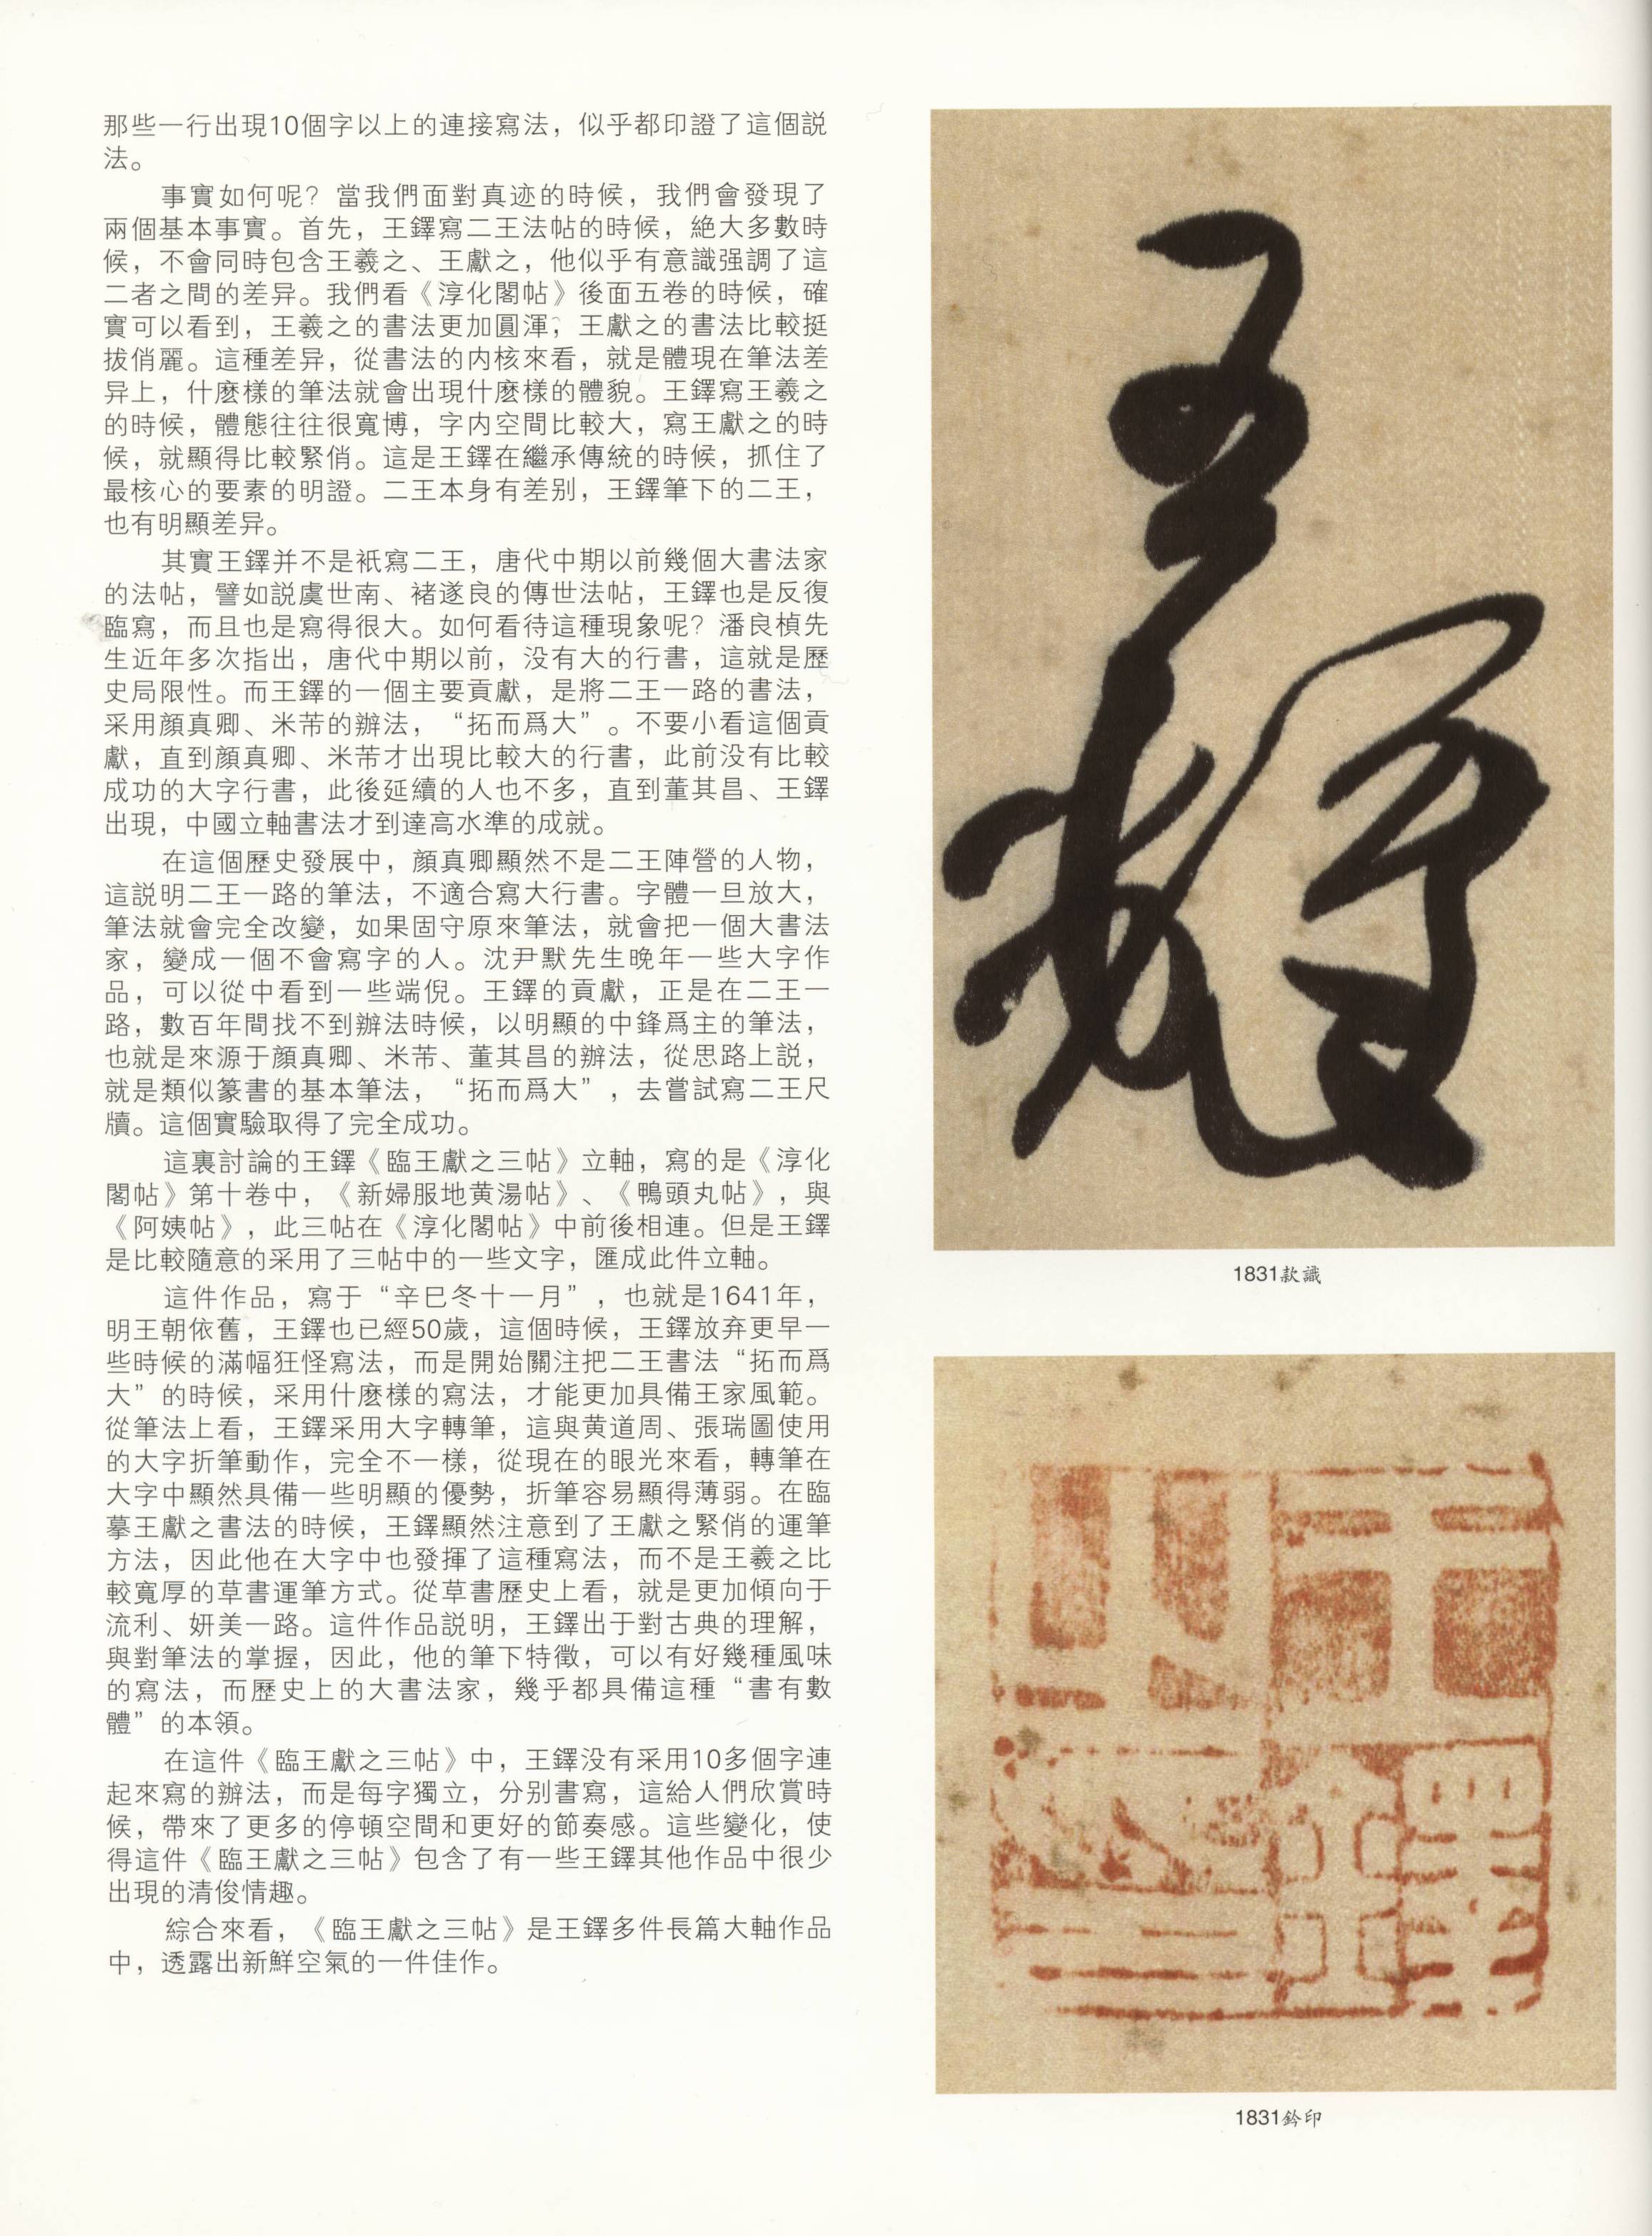 那些一行出現10個字以上的連接寫法，似乎都印證了這個説
法。
事實如何呢？當我們面對真迹的時候，我們會發現了
兩個基本事實。首先，王鐸寫二王法帖的時候，絶大多數時
候，不會同時包含王羲之、王獻之，他似乎有意識强調了這
二者之間的差异。我們看《淳化閣帖》後面五卷的時候，確
實可以看到，王羲之的書法更加圓渾；王獻之的書法比較挺
拔俏麗。這種差异，從書法的内核來看，就是體現在筆法差
异上，什麽樣的筆法就會出現什麽樣的體貌。王鐸寫王羲之
的時候，體態往往很寬博，字内空間比較大，寫王獻之的時
候，就顯得比較緊俏。這是王鐸在繼承傳統的時候，抓住了
最核心的要素的明證。二王本身有差别，王鐸筆下的二王，
也有明顯差异。
其實王鐸并不是衹寫二王，唐代中期以前幾個大書法家
的法帖，譬如説虞世南、褚遂良的傳世法帖，王鐸也是反復
臨寫，而且也是寫得很大。如何看待這種現象呢？潘良楨先
生近年多次指出，唐代中期以前，没有大的行書，這就是歷
史局限性。而王鐸的一個主要貢獻，是將二王一路的書法，
采用顔真卿、米芾的辦法，“拓而爲大”。不要小看這個貢
獻，直到顔真卿、米芾才出現比較大的行書，此前没有比較
成功的大字行書，此後延續的人也不多，直到董其昌、王鐸
出現，中國立軸書法才到達高水準的成就。
在這個歷史發展中，顔真卿顯然不是二王陣營的人物，
這説明二王一路的筆法，不適合寫大行書。字體一旦放大，
筆法就會完全改變，如果固守原來筆法，就會把一個大書法
家，變成一個不會寫字的人。沈尹默先生晚年一些大字作
品，可以從中看到一些端倪。王鐸的貢獻，正是在二王一
路，數百年間找不到辦法時候，以明顯的中鋒爲主的筆法，
也就是來源于顔真卿、米芾、董其昌的辦法，從思路上説，
就是類似篆書的基本筆法，“拓而爲大”，去嘗試寫二王尺
牘。這個實驗取得了完全成功。
這裏討論的王鐸《臨王獻之三帖》立軸，寫的是《淳化
閣帖》第十卷中，《新婦服地黄湯帖》、《鴨頭丸帖》，與
《阿姨帖》，此三帖在《淳化閣帖》中前後相連。但是王鐸
是比較隨意的采用了三帖中的一些文字，匯成此件立軸。
這件作品，寫于“辛巳冬十一月”，也就是1641年，
明王朝依舊，王鐸也已經50歲，這個時候，王鐸放弃更早一
些時候的滿幅狂怪寫法，而是開始關注把二王書法“拓而爲
大”的時候，采用什麽樣的寫法，才能更加具備王家風範。
從筆法上看，王鐸采用大字轉筆，這與黄道周、張瑞圖使用
的大字折筆動作，完全不一樣，從現在的眼光來看，轉筆在
大字中顯然具備一些明顯的優勢，折筆容易顯得薄弱。在臨
摹王獻之書法的時候，王鐸顯然注意到了王獻之緊俏的運筆
方法，因此他在大字中也發揮了這種寫法，而不是王羲之比
較寬厚的草書運筆方式。從草書歷史上看，就是更加傾向于
流利、妍美一路。這件作品説明，王鐸出于對古典的理解，
與對筆法的掌握，因此，他的筆下特徵，可以有好幾種風味
的寫法，而歷史上的大書法家，幾乎都具備這種“書有數
體”的本領。
在這件《臨王獻之三帖》中，王鐸没有采用10多個字連
起來寫的辦法，而是每字獨立，分别書寫，這給人們欣賞時
候，帶來了更多的停頓空間和更好的節奏感。這些變化，使
得這件《臨王獻之三帖》包含了有一些王鐸其他作品中很少
出現的清俊情趣。
綜合來看，《臨王獻之三帖》是王鐸多件長篇大軸作品
中，透露出新鮮空氣的一件佳作。
王鐸
1831款識
王鐸之印
1831鈐印